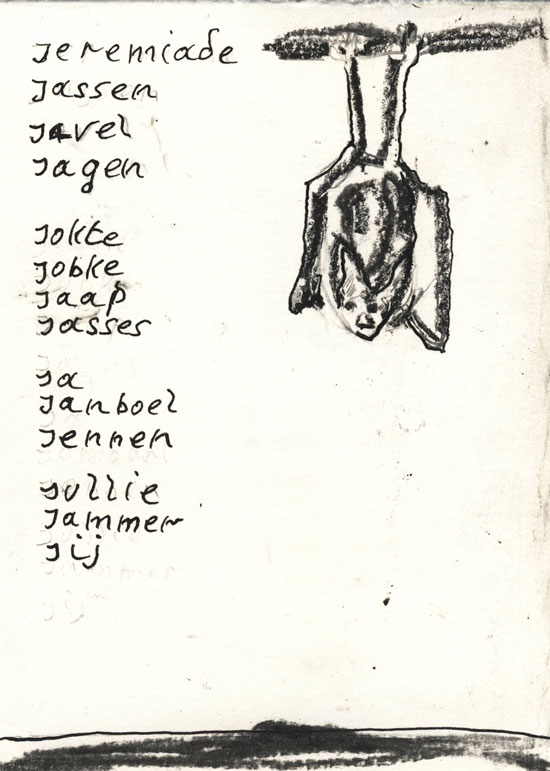 Jeremiade
Jassen
Javel
Jagen
Jokte
Jobke
Jaap
Jasses
Ja
Janboel
Jennen
Jullie
Jammer
Jij